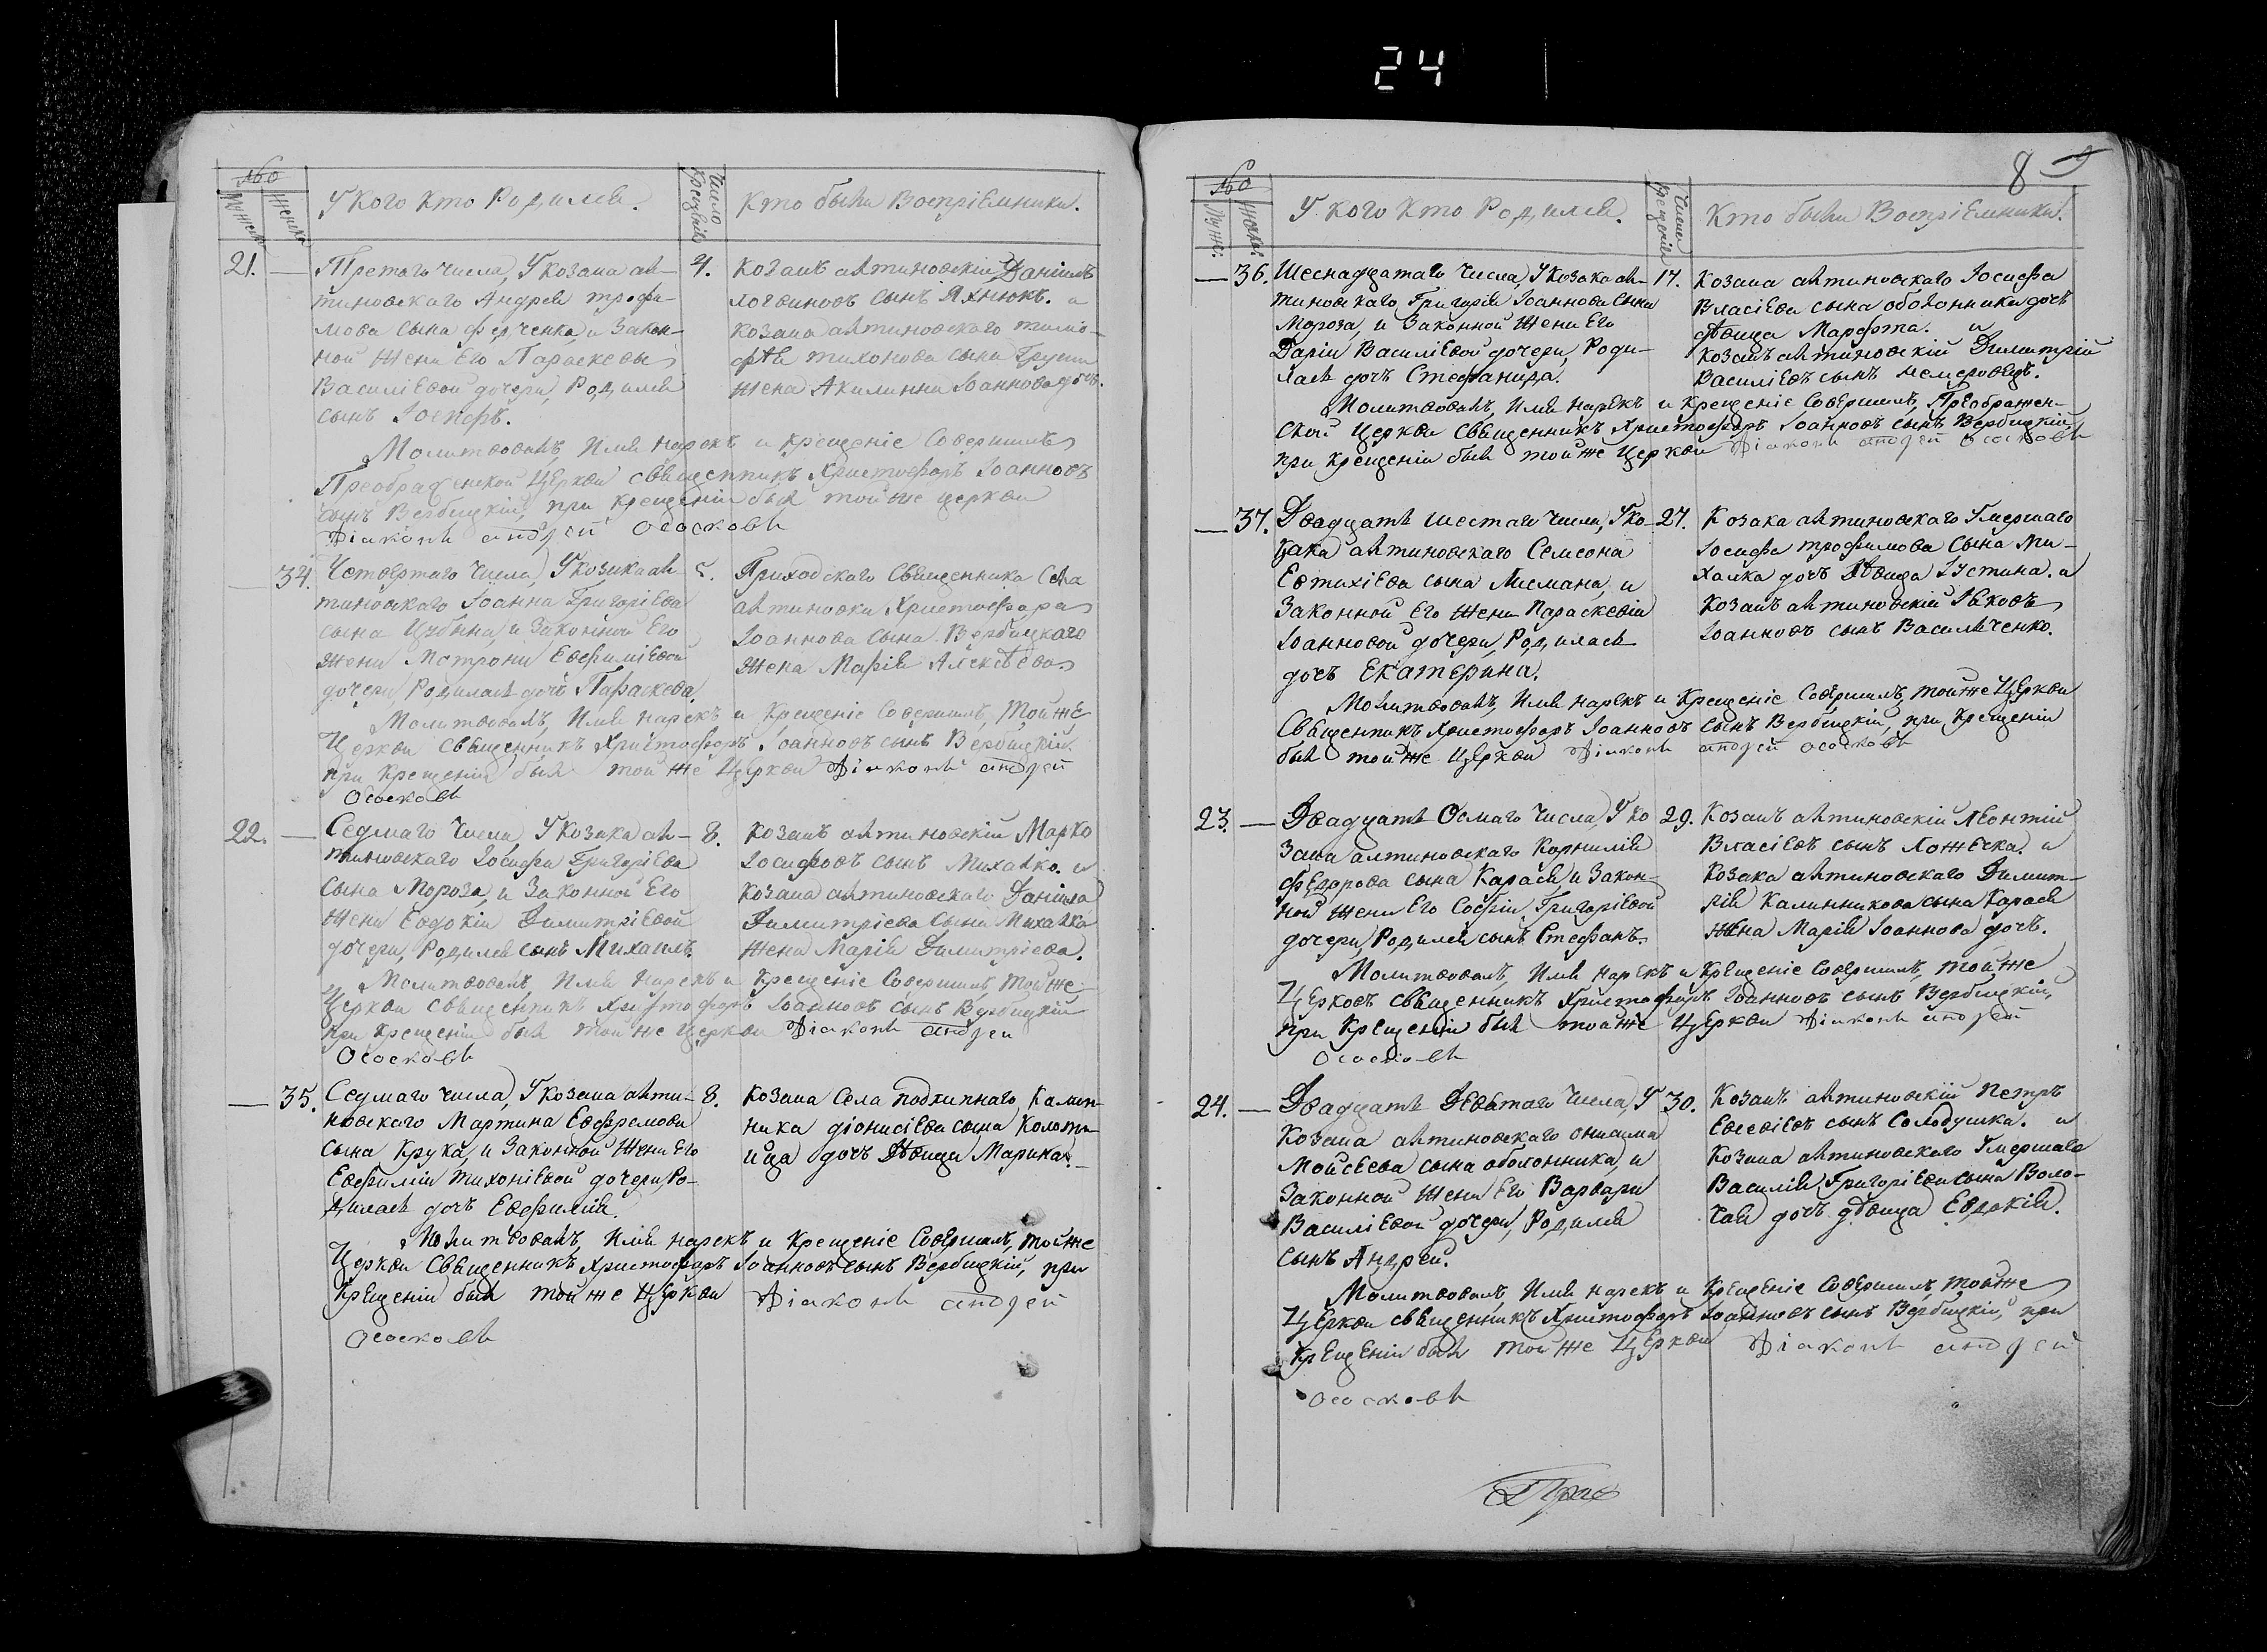 24
№
Мужеска
Женска
У кого кто Родился.
Число
Крещенія
Кто были Воспріемники.
21. — Третаго числа, У козака ал-
тиновскаго Андрея трофи-
мова сына федченка, и Закон-
ной Жени Его Параскевы
Василіевой дочери, Родился
сынъ Іосифъ.
4. Козакъ алтиновскій Даніилъ
логвиновъ сынъ Яхнюкъ. и
козака алтиновскаго тимо-
фѣя тихонова сына
жена Акилинна Іоаннова дочь.
Молитвовалъ, Имя нарекъ и Крещеніе Совершилъ
Преображенской Церкви священникъ Христофоръ Іоанновъ
сынъ Вербицкій, при крещеніи былъ той же церкви
Діаконъ андрей Ососковъ
— 34. Четвертаго Числа, У козака ал-
тиновскаго Іоанна Григоріева
сына Цыбина, и Законной Его
Жени Мотрони Евфиміевой
дочери, Родилась дочь Параскева.
5. Приходскаго Священника Села
алтиновки Христофора
Іоаннова сына Вербицкаго
Жена Марія Алексѣева
Молитвовалъ, Имя нарекъ и Крещеніе Совершилъ, Той же
Церкви Священникъ Христофоръ Іоанновъ сынъ Вербицкій.
при Крещеніи былъ той же Церкви Діаконъ андрей
Ососковъ
22. — Седмаго Числа, У козака ал-
тиновскаго Іосифа Григоріева
Сына Мороза, и Законной Его
Жени Евдокіи Димитріевой
дочери, Родился сынъ Михаилъ.
8. Козакъ алтиновскій Марко
Іосифовъ сынъ Михалко. и
Козака алтиновскаго Даніила
Димитріева Сына Михалка
жена Марія Димитріева.
Молитвовалъ, Имя Нарекъ и Крещеніе Совершилъ, Той же
Церкви священникъ Христофоръ Іоанновъ Сынъ Вербицкій
при Крещеніи былъ той же Церкви Діаконъ андрей
Ососковъ
— 35. Седмаго Числа, У козака алти-
новскаго Мартина Евфремова
сына Крука, и Законной Жени Его
Евфиміи Тихоніевой дочери, Ро-
дилась дочь Евфимія.
8. Козака Села подлипнаго Калин-
ника діонисіева сына Колоти-
ица дочь Дѣвица Марина.
Молитвовалъ, Имя нарекъ и Крещеніе Совершилъ, той же
Церкви Священникъ Христофоръ Іоанновъ сынъ Вербицкій, при
Крещеніи былъ той же Церкви Діаконъ андрей
Ососковъ
8 9
№
Муже:
Женс:
У кого Кто Родился.
Число
Крещенія
Кто были Воспріемники.
— 36. Шеснадцатаго Числа, У Козака ал-
тиновскаго Григорія Іоаннова Сына
Мороза, и Законной Жени Его
Даріи Василіевой дочери, Роди-
лась дочь Стефанида.
17. Козака алтиновскаго Іосифа
Власіева сына оболонника дочь
дѣвица Марфта. и
козакъ алтиновскій Димитрій
Василіевъ сынъ немеровецъ.
Молитвовалъ, Имя нарекъ и Крещеніе Совершилъ, Преображен-
ской Церкви Священникъ Христофоръ Іоанновъ сынъ Вербицкій,
при Крещеніи былъ той же Церкви Діаконъ андрей Ососковъ
— 37. Двадцать шестаго Числа, У ко-
зака алтиновскаго Семсона
Евтихіева сына Лисмана, и
Законной Его Жени Параскевіи
Іоанновой дочери, Родилась
дочь Екатерина.
27. Козака алтиновскаго Умершаго
Іосифа трофимова Сына Ми-
халка дочь Дѣвица Іустина. и
Козакъ алтиновскій Іаковъ
Іоанновъ сынъ Васильченко.
Молитвовалъ, Имя нарекъ и Крещеніе Совершилъ, той же Церкви
Священникъ Христофоръ Іоанновъ сынъ Вербицкій, при Крещеніи
былъ той же Церкви Діаконъ андрей ососковъ
23. — Двадцать Осмаго Числа, У ко
зака алтиновскаго Корнилія
федорова сына Карася, и Закон-
ной Жени Его Софіи Григоріевой
дочери, Родился сынъ Стефанъ.
29. Козакъ алтиновскій Леонтій
Власіевъ сынъ Ложечка. и
Козака алтиновскаго Димит-
рія Калинникова сына Карася
Жена Марія Іоаннова дочь.
Молитвовалъ, Имя нарекъ и Крещеніе Совершилъ, той же
Церковъ священникъ Христофоръ Іоанновъ сынъ Вербицкій,
при Крещеніи былъ той же Церкви Діаконъ андрей
Ососковъ
24. — Двадцать Девятаго Числа, У
Козака алтиновскаго онисима
Мойсеева сына оболонника, и
Законной Жени Его Варвари
Василіевой дочери, Родился
сынъ Андрей.
30. Козакъ алтиновскій Петръ
Евсевіевъ сынъ Солодушка. и
Козака алтиновскаго Умершаго
Василія Григоріева сына Воло-
чая дочь дѣвица Евдокія.
Молитвовалъ, Имя нарекъ и Крещеніе Совершилъ, той же
Церкви священникъ Христофоръ Іоанновъ сынъ Вербицкій, при
Крещеніи былъ той же Церкви Діаконъ андрей
ососковъ